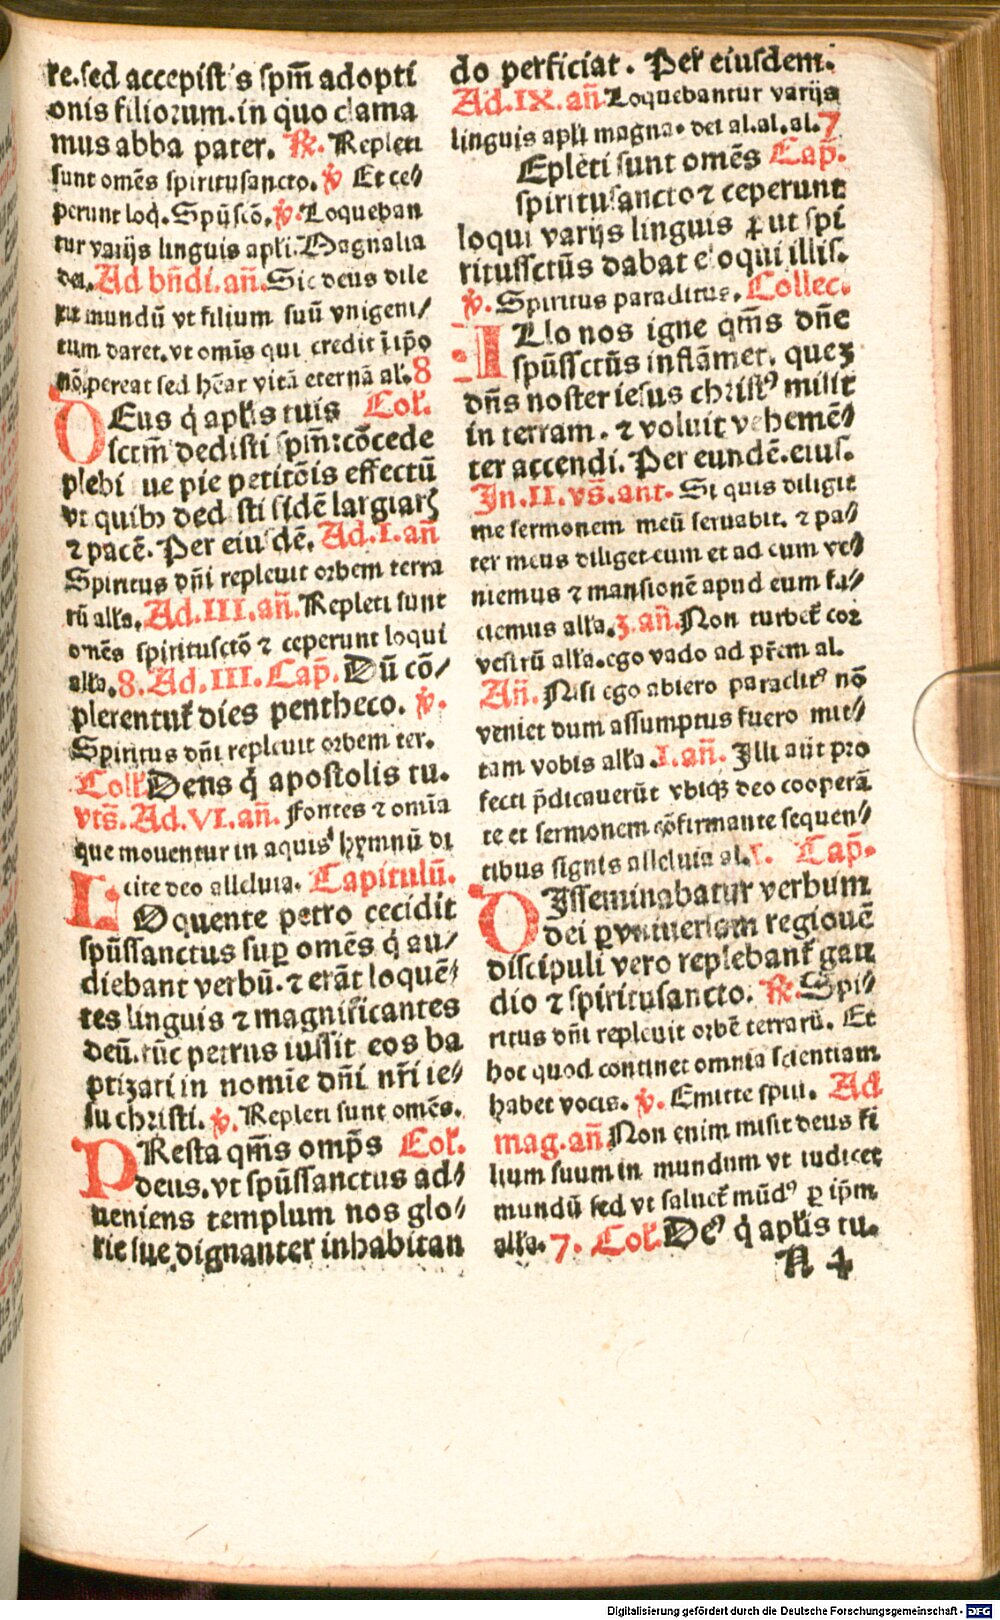 re.sed accepist s spm̄ adopti
onis filiorum.in quo clama
mus abba pater. ℟. Repleti
sunt omēs spiritusancto. ℣ Et ce/
perunt loq̄. Spūscō. ℣. Loqueban
tur varijs linguis apľi. Magnalia
dei. Ad bn̄di. an̄. Sic deus dile
xit mundū vt filium suū vnigeni/
tum daret. vt omīs qui credit ī ipo
nō pereat sed hēat vitā eternā al. 8
DEus q̄ aplis tuis Col.
sctm̄ dedisti spm̄: cōcede
plebi tue pie petitōis effectū
vt quibꝫ dedisti fidē largiarꝭ
⁊ pacē. Per eiusdē. Ad. I. an̄
Spiritus dn̄i repleuit orbem terra
rū alľa. Ad. III. an̄. Repleti sunt
omēs spirituscto ⁊ ceperunt loqui
alľa. 8. Ad. III. Cap̄. Dū cō/
plerentur dies pentheco. ℣.
Spiritus dn̄i repleuit orbem ter.
Coll. Deus q̄ apostolis tu.
vts̄. Ad. VI. an̄. Fontes ⁊ omīa
que mouentur in aquis hymnū di
cite deo alleluia. Capitulū.
LOquente petro cecidit
spūssanctus sup omēs q̄ au/
diebant verbū. ⁊ erāt loquē/
tes linguis ⁊ magnificantes
deū. tūc petrus iussit eos ba
ptizari in nomīe dn̄i nr̄i ie/
su christi. ℣. Repleti sunt omēs.
PResta qm̄s omps̄ Col.
deus. vt spūssanctus ad/
ueniens templum nos glo/
rie sue dignanter inhabitan
do perficiat. Per eiusdem.
Ad. IX. an̄. Loquebantur varijs
linguis apľi magna. dei al. al. al. 7
Epleti sunt omēs Cap̄.
spiritusancto ⁊ ceperunt
loqui varijs linguis ꝓut spi
ritussctūs dabat eloqui illis.
℣. Spiritus paraclitus. Collec.
ILlo nos igne qm̄s dn̄e
spūssctūs inflāmet. quez
dn̄s noster iesus christꝰ misit
in terram. ⁊ voluit vehemē/
ter accendi. Per eundē. eius.
In. II. vs̄. ant. Si quis diligit
me sermonem meū seruabit. ⁊ pa/
ter meus diliget eum et ad eum ve/
niemus ⁊ mansionē apud eum fa/
ciemus alľa. 3. an̄. Non turbet cor
vestrū alľa. ego vado ad pr̄em al.
An̄. Nisi ego abiero paraclitꝰ nō
veniet dum assumptus fuero mit/
tam vobis alľa. I. an̄. Illi aūt pro
fecti p̄dicauerūt vbiqꝫ deo cooperā
te et sermonem cōfirmante sequen/
tibus signis alleluia al. Cap̄.
DIsseminabatur verbum
dei ꝑ vniuersam regionē
discipuli vero replebant gau
dio ⁊ spiritusancto. ℟. Spi/
ritus dn̄i repleuit orbē terrarū. Et
hoc quod continet omnia scientiam
habet vocis. ℣. Emitte spūi. Ad
mag. an̄ Non enim misit deus fi
lium suum in mundum vt iudicet
mundū sed vt saluet mūdꝰ ꝑ ipm
alľa. 7. Col. Deꝰ q̄ aplis tu.
N 4
Digitalisierung gefördert durch die Deutsche Forschungsgemeinschaft - DFG